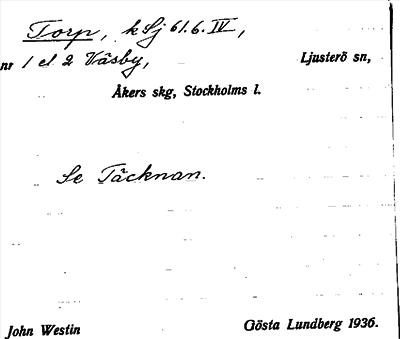 Torp, k Sj 61.6.IV,
nr 1 el 2 Väsby, Ljusterö sn,
Åkers skg, Stockholms l.
Se Täcknan.
John Westin Gösta Lundberg 1936.